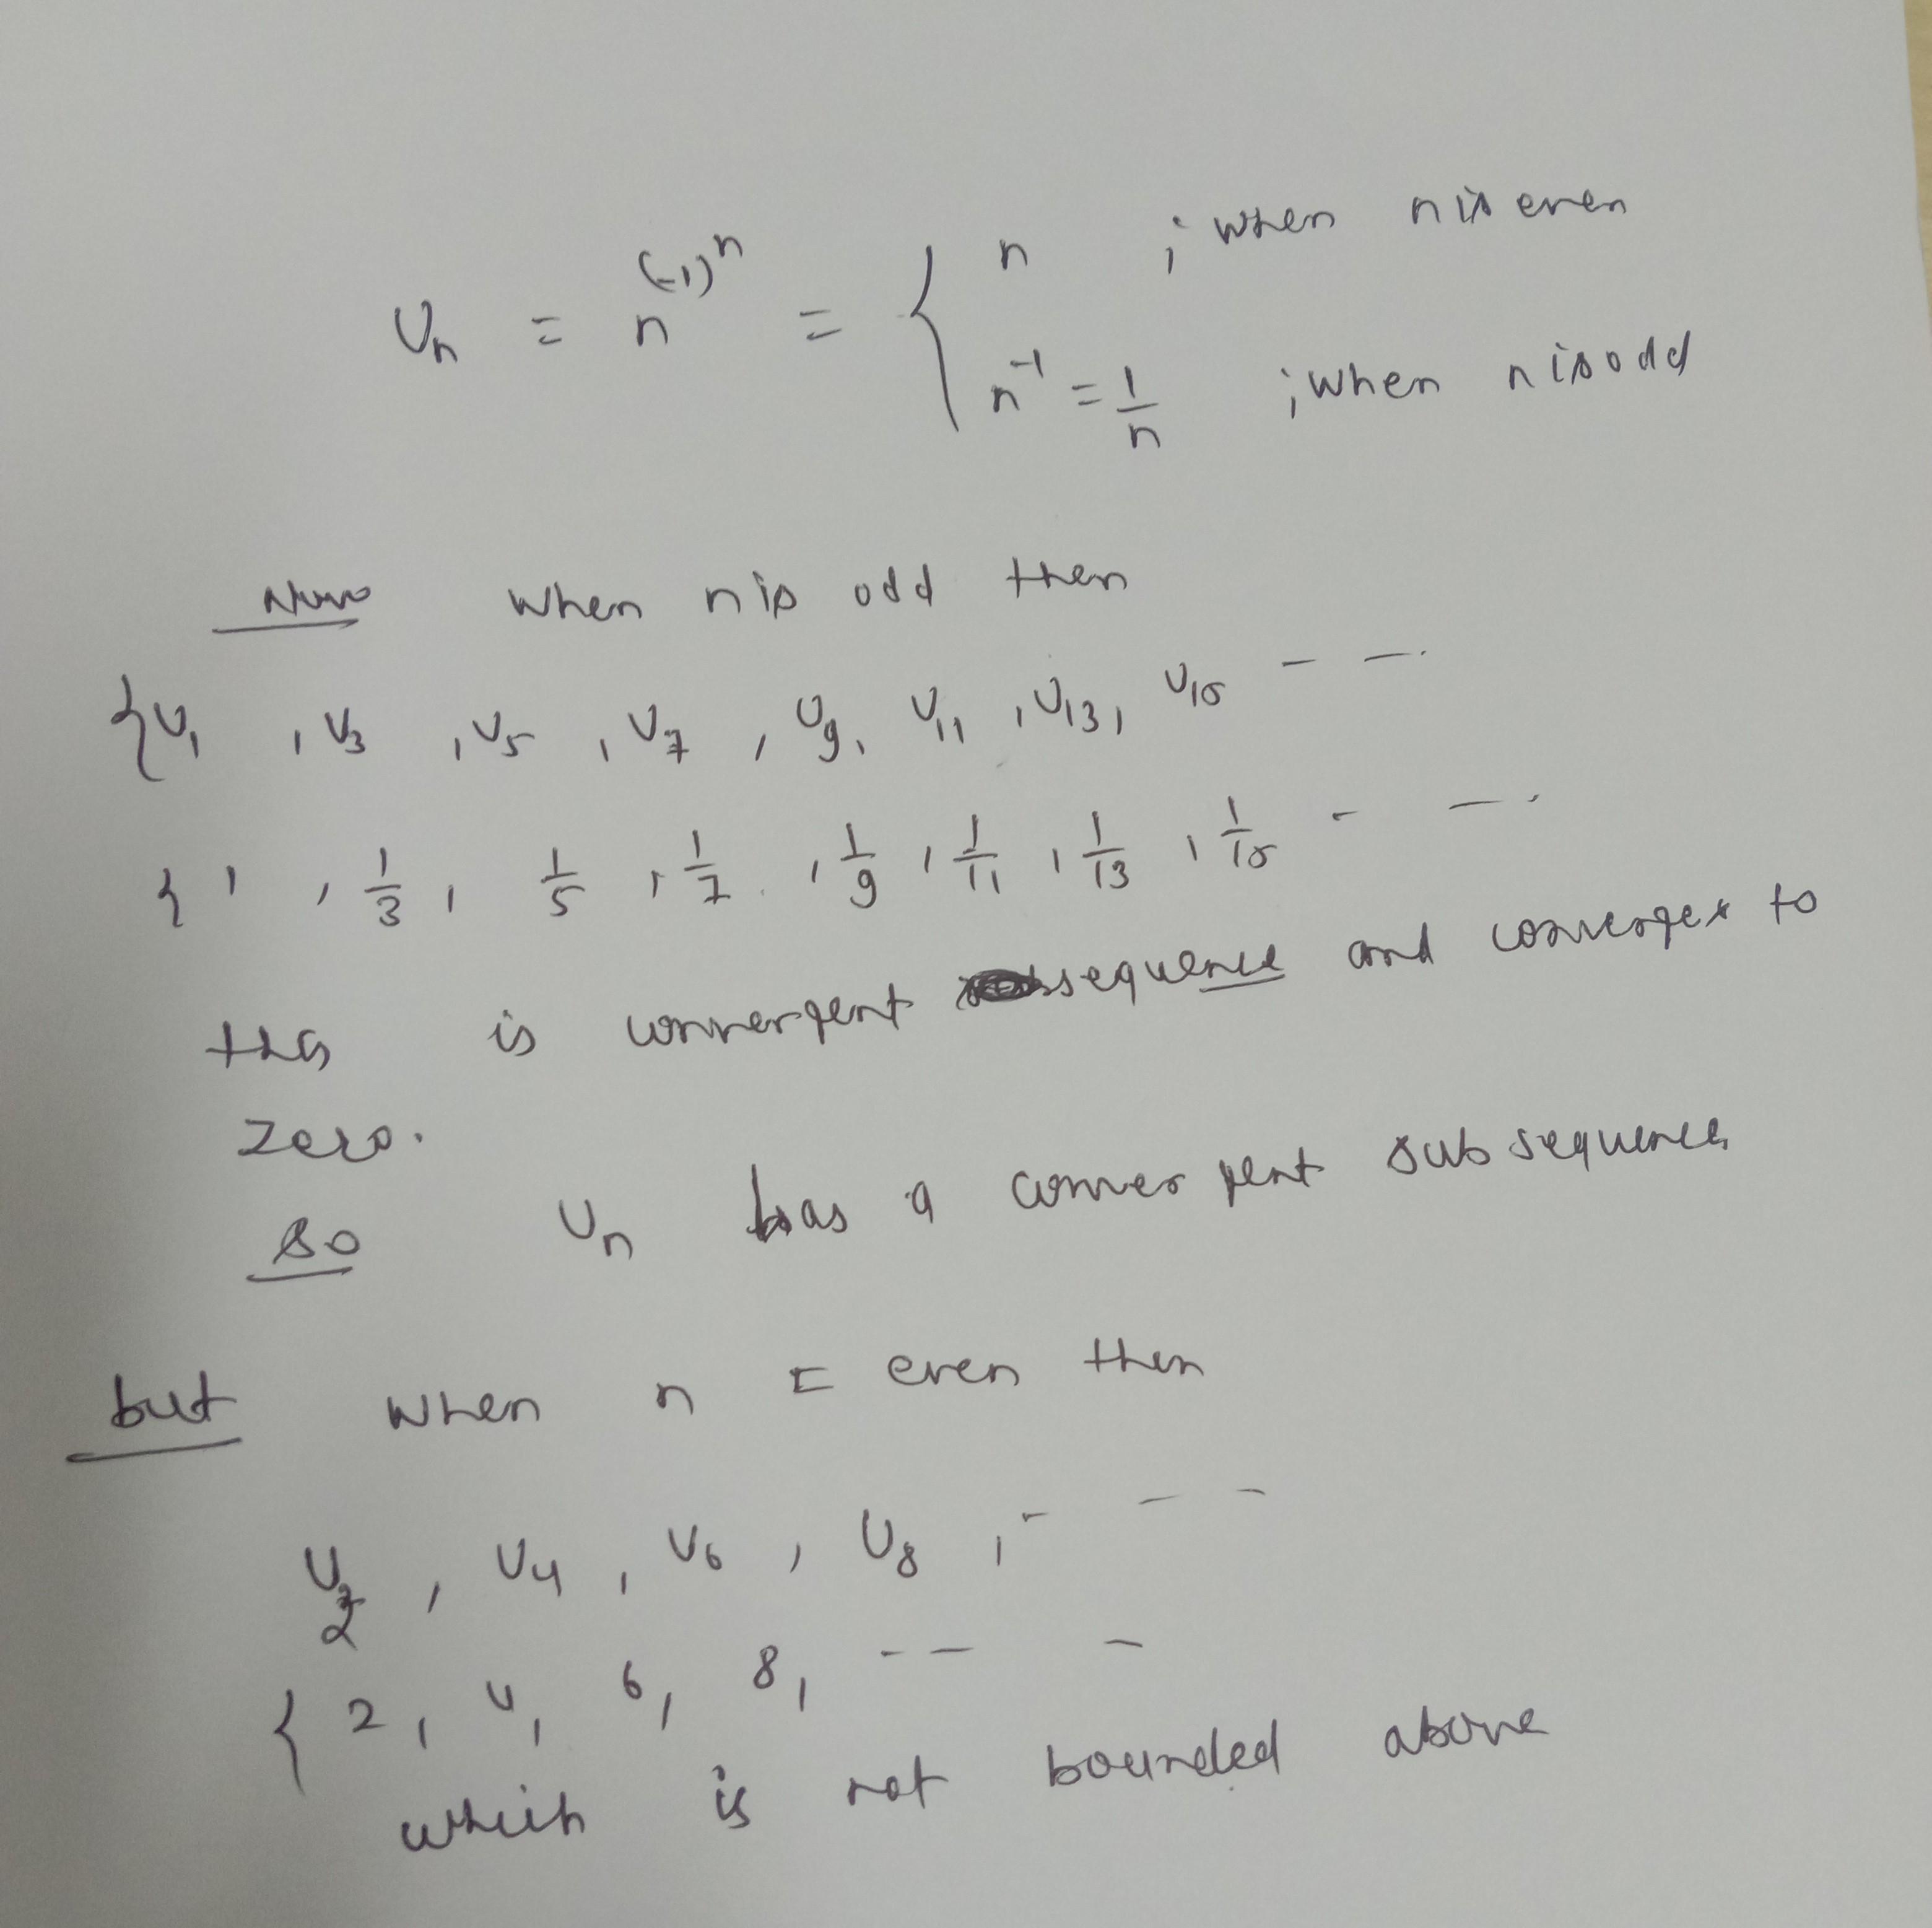 Uₙ = n^(-1)^n = { n ; when n is even
n^-1 = 1/n ; when n is odd
Now when n is odd then
{U₁ , U₃ , U₅ , U₇ , U₉, U₁₁ , U₁₃, U₁₅ - - .
{ 1 , 1/3 , 1/5 , 1/7 , 1/9 , 1/11 , 1/13 , 1/15 - - .
this is convergent sequence and converges to
zero.
so Uₙ has a convergent subsequence
but when n = even then
U₂ , U₄ , U₆ , U₈ , - - -
{ 2, 4, 6, 8, - - -
which is not bounded above